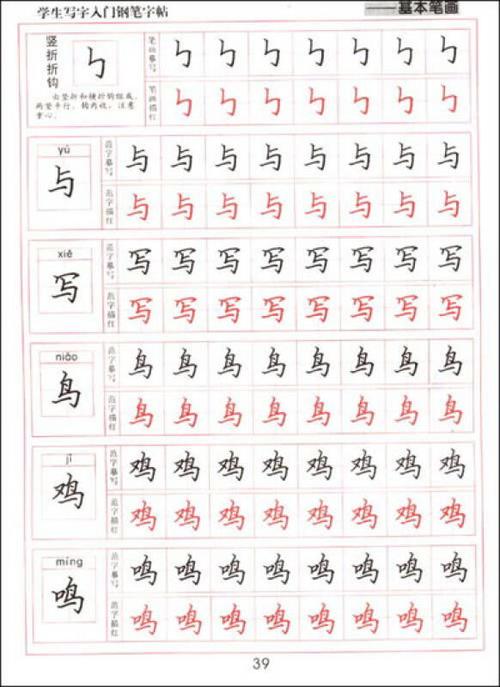 学生写字入门钢笔字帖 ——基本笔画
竖折折钩 ㇉
由竖折和横折钩组成,
两竖平行,钩内收,注意
重心。
笔画摹写 ㇉ ㇉ ㇉ ㇉ ㇉ ㇉ ㇉
笔画描红 ㇉ ㇉ ㇉ ㇉ ㇉ ㇉ ㇉
yǔ
与
范字摹写 与 与 与 与 与 与 与 与
范字描红 与 与 与 与 与 与 与 与
xiě
写
范字摹写 写 写 写 写 写 写 写 写
范字描红 写 写 写 写 写 写 写 写
niǎo
鸟
范字摹写 鸟 鸟 鸟 鸟 鸟 鸟 鸟 鸟
范字描红 鸟 鸟 鸟 鸟 鸟 鸟 鸟 鸟
jī
鸡
范字摹写 鸡 鸡 鸡 鸡 鸡 鸡 鸡 鸡
范字描红 鸡 鸡 鸡 鸡 鸡 鸡 鸡 鸡
míng
鸣
范字摹写 鸣 鸣 鸣 鸣 鸣 鸣 鸣 鸣
范字描红 鸣 鸣 鸣 鸣 鸣 鸣 鸣 鸣
39